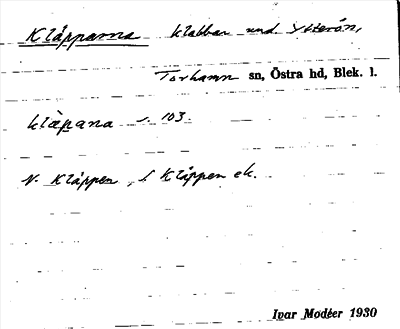 Kläpparna klabbar und Ytterön,
Torhamn sn, Östra hd, Blek. l.
kläpana s. 103.
N. Kläppen, S Kläppen ek.
Ivar Modéer 1930